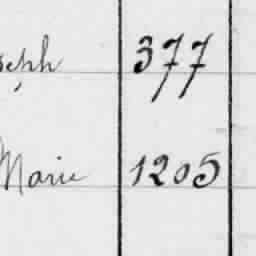 seph 377
Marie 1205